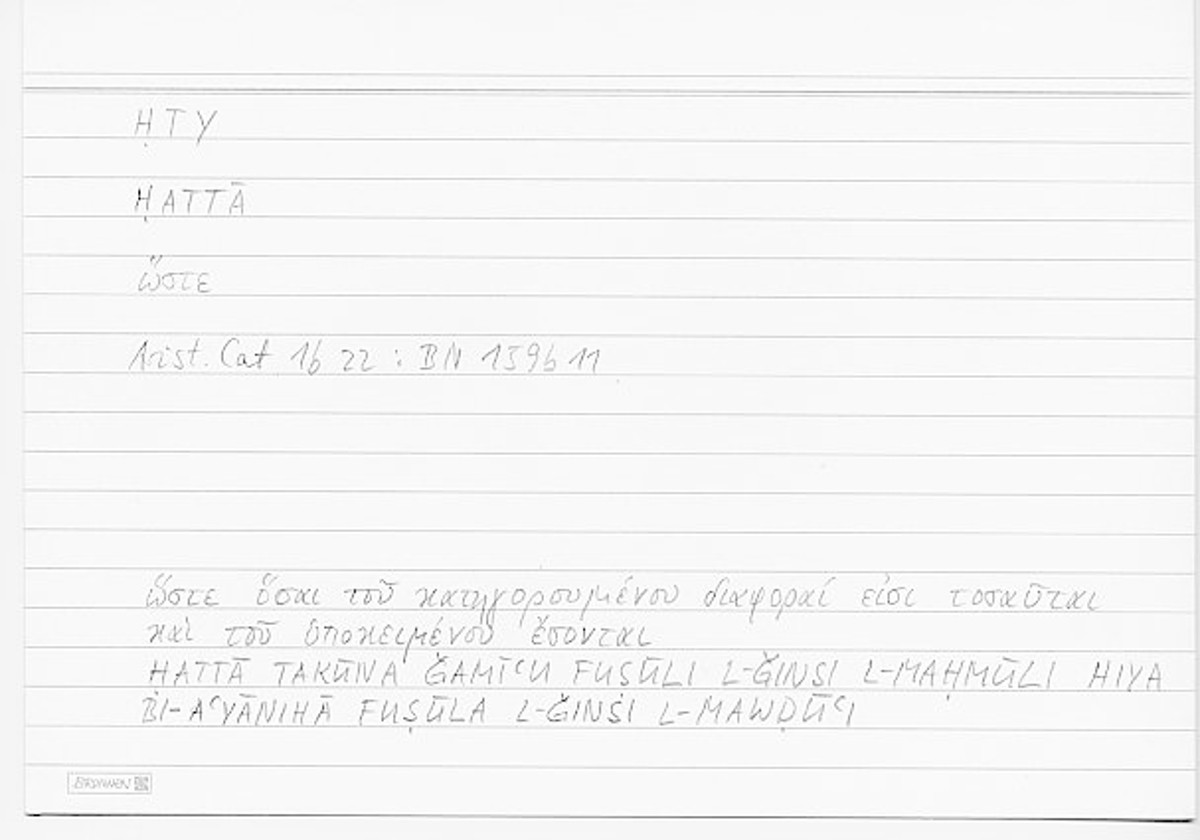 ḤTY
ḤATTĀ
ὥστε
Arist. Cat 1b 22 : BN 159b 11
ὥστε ὅσαι τοῦ κατηγορουμένου διαφοραί εἰσι τοσαῦται
καὶ τοῦ ὑποκειμένου ἔσονται
HATTĀ TAKŪNA ǦAMĪʿU FUṢŪLI L-ǦINSI L-MAḤMŪLI HIYA
BI-AʿYĀNIHĀ FUṢŪLA L-ǦINSI L-MAWḌŪʿI
BRUNNEN